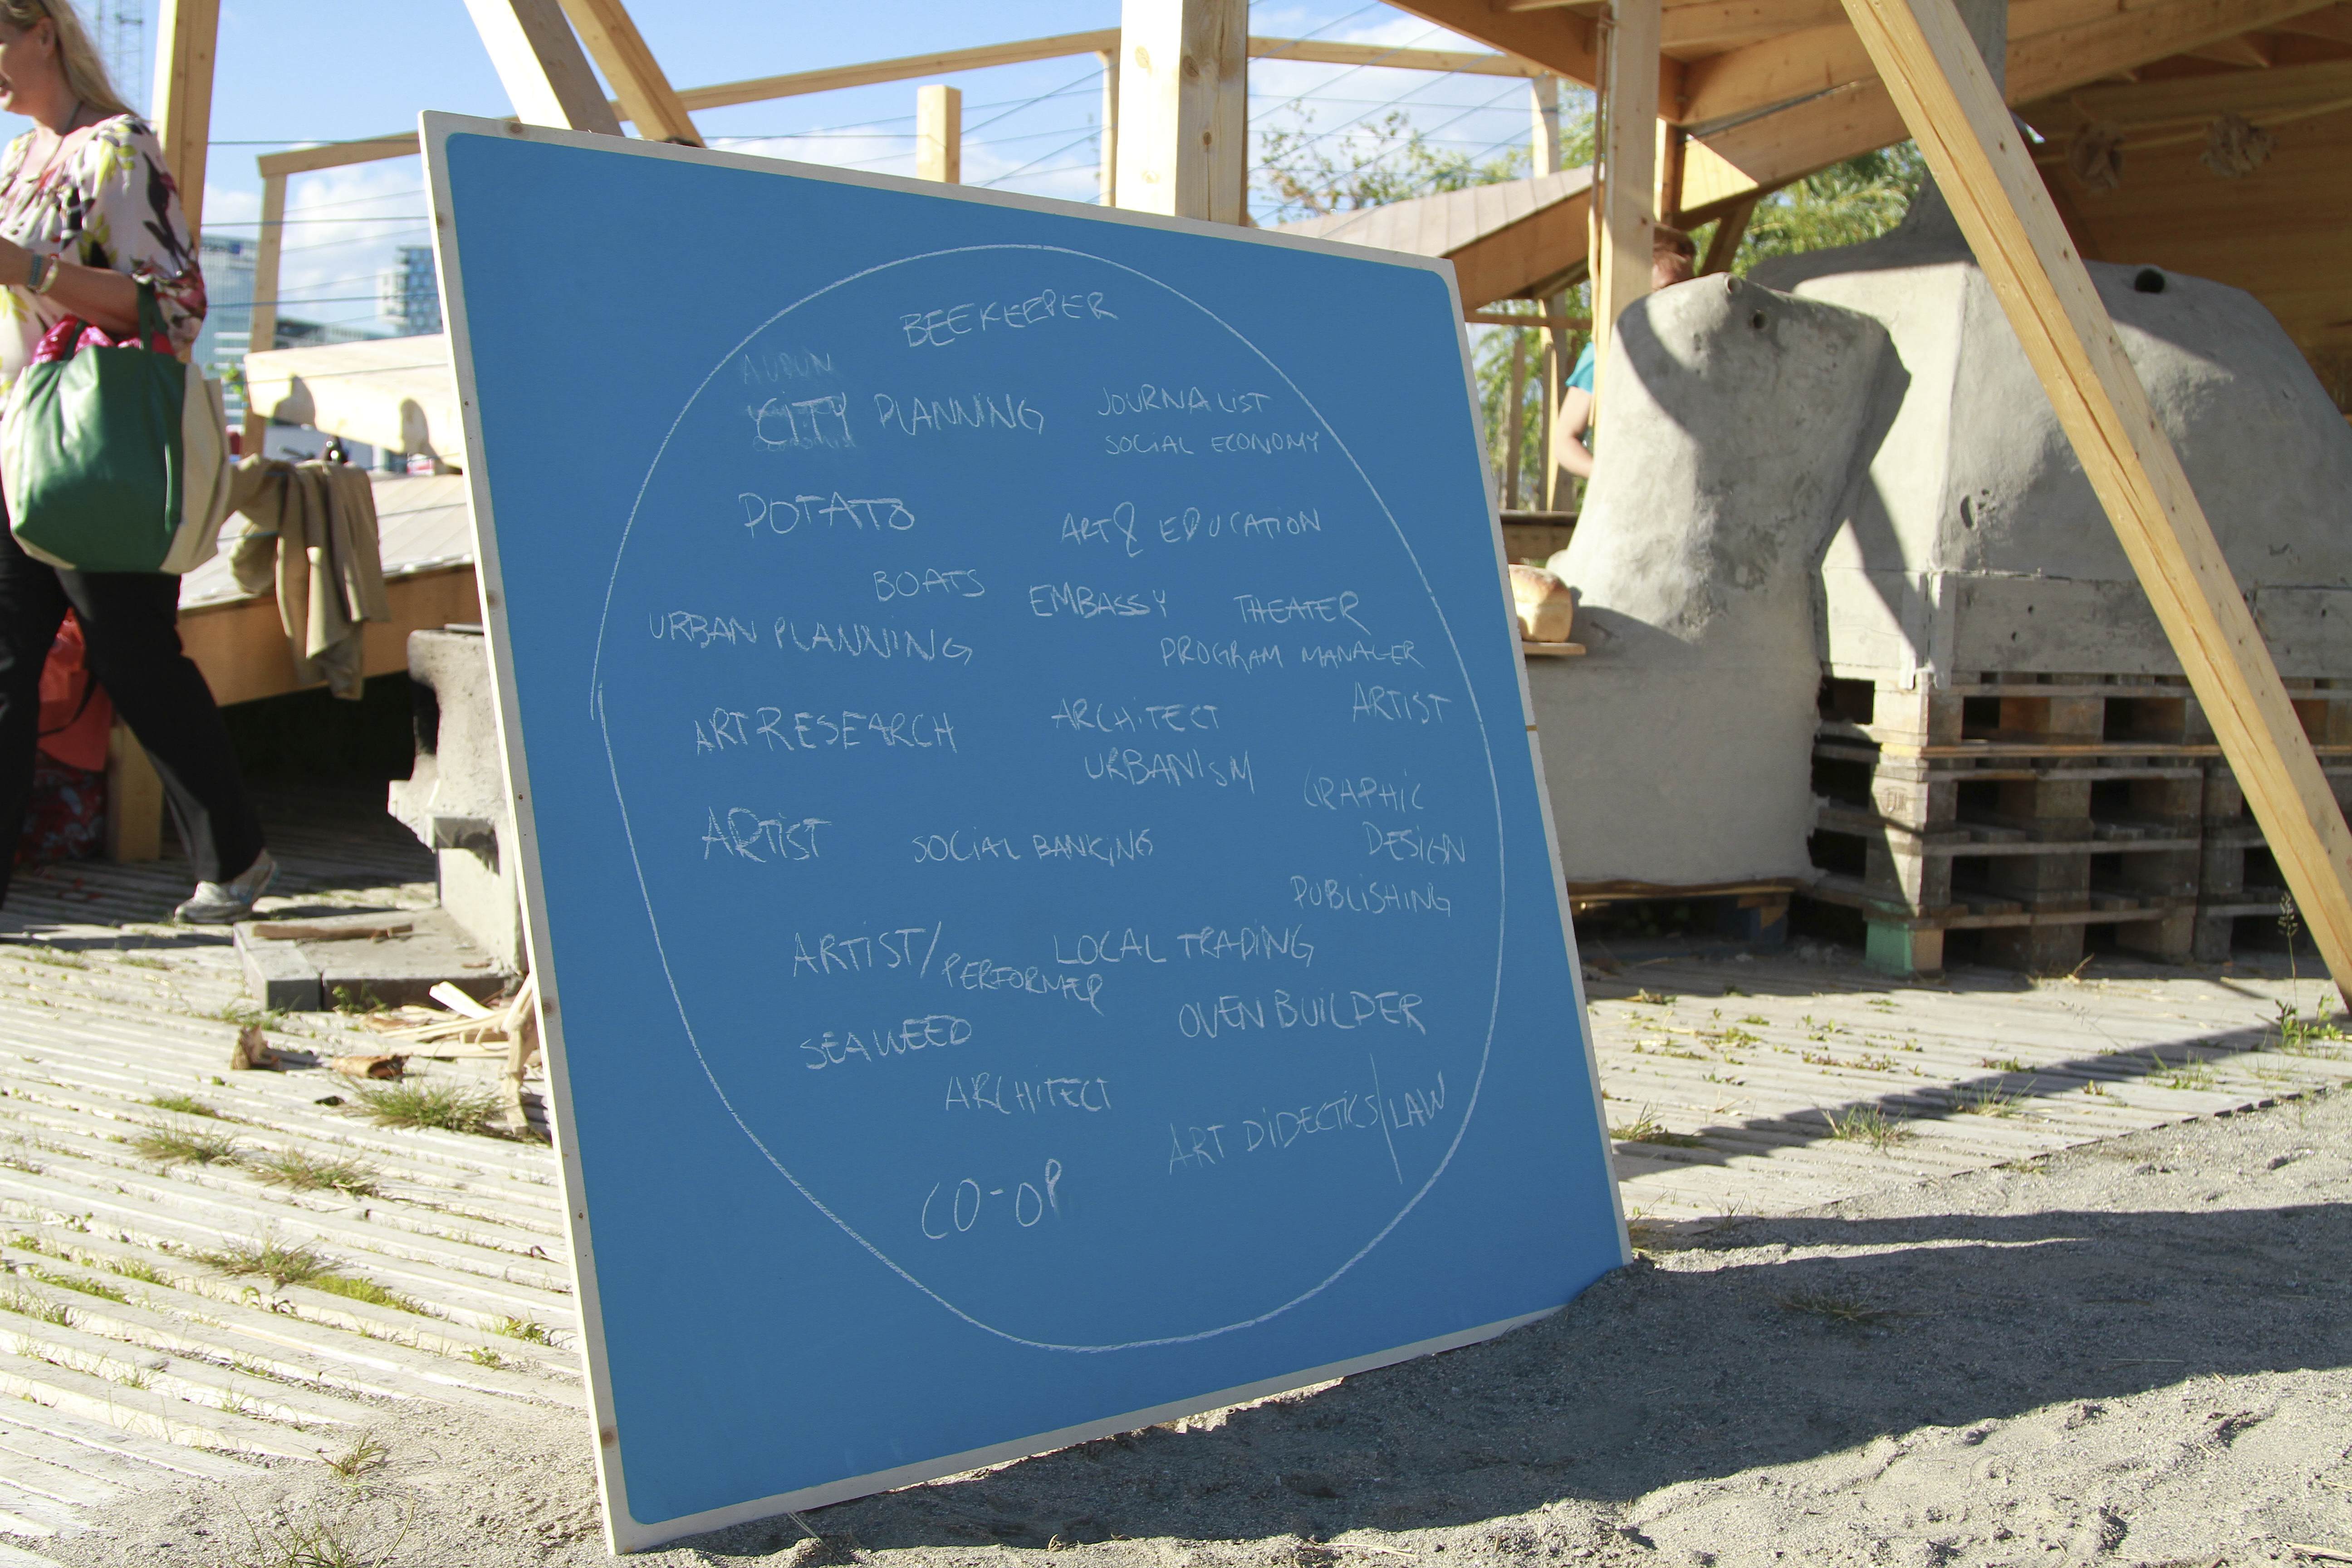 BEEKEEPER
CITY PLANNING
JOURNALIST
SOCIAL ECONOMY
POTATO
ART & EDUCATION
BOATS
EMBASSY
THEATER
URBAN PLANNING
PROGRAM MANAGER
ART RESEARCH
ARCHITECT
URBANISM
ARTIST
GRAPHIC
DESIGN
PUBLISHING
ARTIST
SOCIAL BANKING
ARTIST/
PERFORMER
LOCAL TRADING
SEAWEED
OVEN BUILDER
ARCHITECT
ART DIDECTICS/LAW
CO-OP